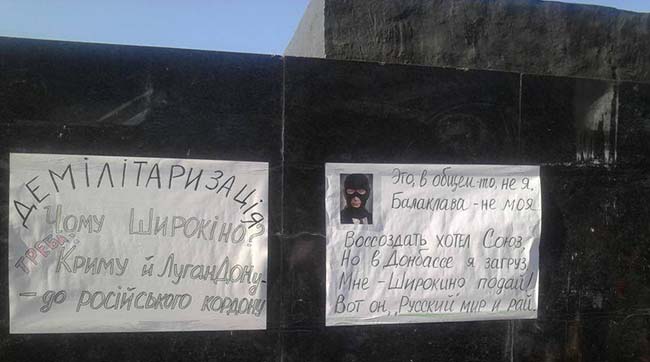 ДЕМІЛІТАРИЗАЦІЯ
Чому Широкіно?
ТРЕБА
Криму й ЛуганДону-
- до російського кордону
Это, в общем-то, не я.
Балаклава - не моя.
Воссоздать хотел Союз,
Но в Донбассе я загруз,
Мне - Широкино подай!
Вот он, „Русский мир и рай.